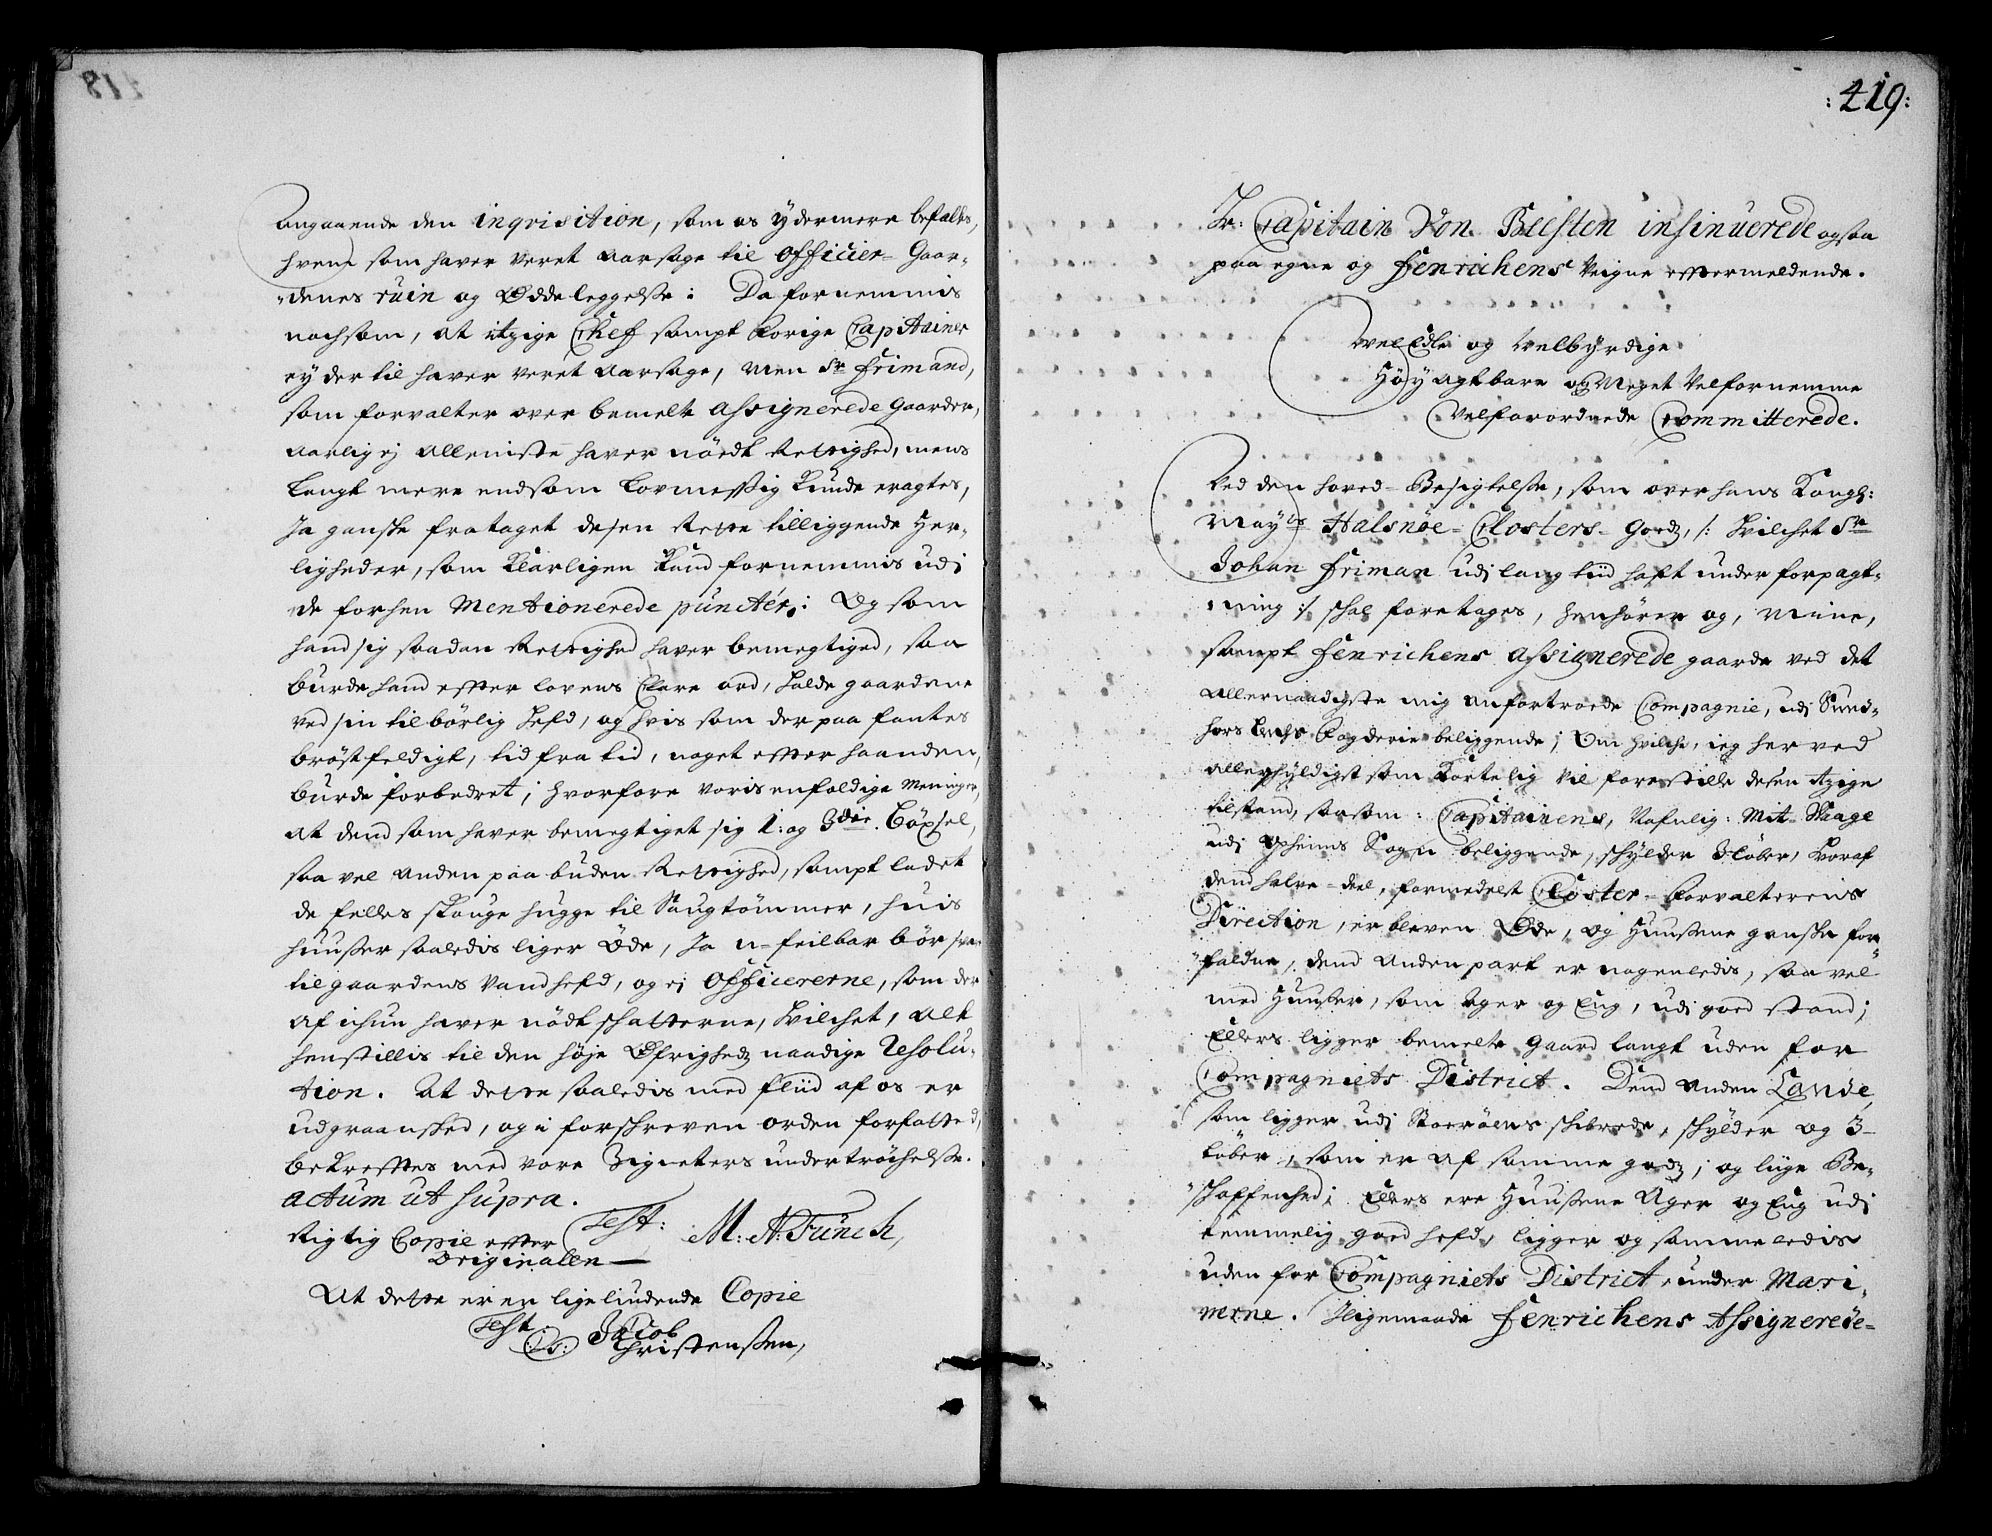 Angaaende den inqvisition, som os ydermere befalles,
hvem som haver veret aarsage til Officier-Gaar-
denes ruin og Ødeleggelse: Da fornemmis
nochsom, at itzige Chef sampt forige Capitainer
ey der til haver veret aarsage, men Sr Frimand,
som forvalter over bemelte Assignerede Gaarder,
aarlig ej alleniste haver nödt Rettighed, mens
langt mere end som lovmessig kunde eragtes,
Ja ganske frataget desen Rette tilliggende Her-
ligheder, som klarligen kand fornemmis udj
de forhen Mentionerede puncter: Og som
hand sig saadan Rettighed haver bemegtiged, saa
burde hand effter lovens klare ord, holde gaardene
ved sin tilbörlig hefd, og hvis som der paa fantes
bröstfeldigt, tid fra tid, naget effter haanden,
burde forbedret; hvorfore voris enfoldige Meninger,
at dend som haver bemegtiget sig 1: og 3die böxsel,
saa vel anden paabuden Rettighed, sampt ladet
de felles skouge hugge til Saugtömmer, huis
huusser saaledis liger Øde, Ja u-feilbar bör svare
til gaardens vandhefd, og ej Officererne, som der
af ichun haver nödt schatterne, hvilchet, alt
henstillis til den höje Øfrigheds naadige Resolu-
tion. At dette saaledis med fliid af os er
udgraansked, og i forschreven orden forfatted,
bekrefftes med vore Zigneters undertröchelse.
actum ut supra.
Rigtig Copie effter Test: M: A: Fünch,
Originalen
At dette er en ligeliudende Copie
Test: Jacob
Christenssen,
:419:
Hr: Capitain Von Beesten insinuerede ogsaa
paa egne og Fenrichens Veigne efftermeldende.
Vel Edle og Velbyrdige
Höy Agtbare og Meget Velfornemme
Velforordnede Committerede.
Ved den hoved-Besigtelse, som over hans Kongl:
Mayts Halsnöe-Closters-Gods, /: hvilchet Sr
Johan Friman udj lang tiid haft under forpagt-
ning :/ schal foretages, henhörer og, mine,
sampt Fenrichens Assignerede gaarde ved det
allernaadigste mig anfortroede Compagnie, udj Sund-
hors lechs fogderie beliggende; Om hvilche, ieg her ved
allerskyldigst som kortelig vil forestille desen itzige
tilstand, saasom: Capitainens, Nafnlig: Mit-Waage
udj Opheims Sogn beliggende, schylder 3 löber, hvoraf
dend halve-deel, formedelst Closter-forvalterens
Direction, er bleven Øde, og Huussene ganske for-
faldne, dend anden part er nogenledis, saa vel
med Huusser, som ager og Eng, udj goed stand;
Ellers ligger bemelte Gaard langt uden for
Compagniets District. Dend anden Lande,
som ligger udj Storöens schibrede, schylder og 3-
löber, som er af samme gods; og liige Be-
schaffenhed; Ellers ere Huussene Ager og Eng udj
temmelig goed hefd, ligger og sammeledis
uden for Compagniets District, under Mari-
nerne. Iligemaade Fenrichens Assignerede-